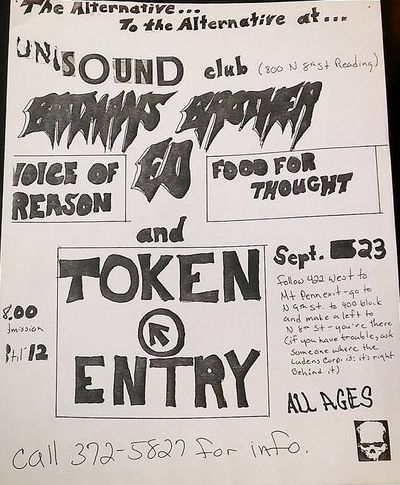 The Alternative...
To the Alternative at...
UNISOUND club (800 N. 8th St Reading)
BATMANS BROTHER
ED
VOICE OF
REASON
FOOD FOR
THOUGHT
and
TOKEN
ENTRY
Sept. 23
Follow 422 West to
Mt Penn exit - go to
N 9th St. to 400 block
and make a left to
N 8th St - you're there
(if you have trouble, ask
someone where the
Ludens Corp. is: it's right
Behind it)
8.00
Admission
12
ALL AGES
call 372-5827 for info.